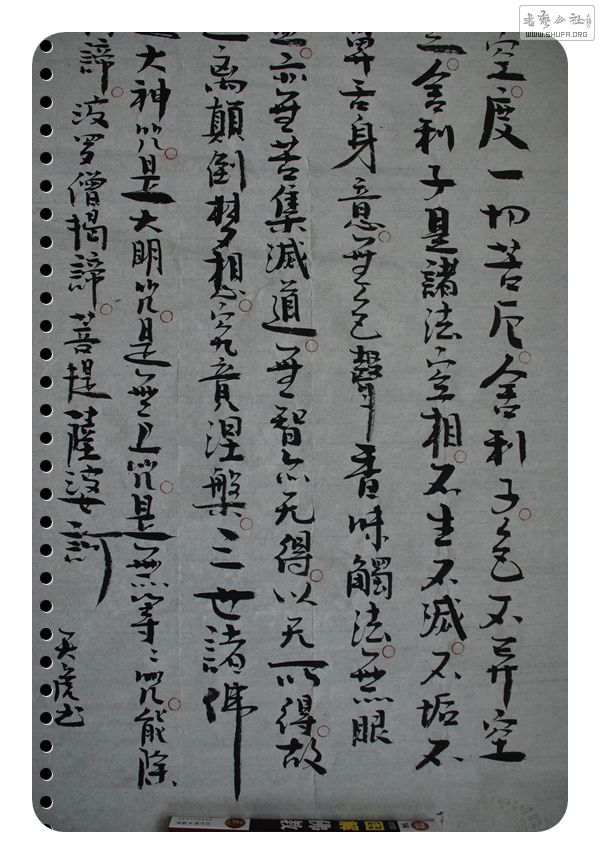 空度一切苦厄舍利子色不异空
舍利子是諸法空相不生不滅不垢不
鼻舌身意無色聲香味觸法無眼
亦無苦集滅道無智亦无得以无所得故
离顛倒梦想究竟涅槃三世諸佛
大神咒是大明咒是無上咒是無等〻咒能除
諦波罗僧揭諦菩提薩婆訶
虎书
书艺公社
WWW.SHUFA.ORG
图解佛教